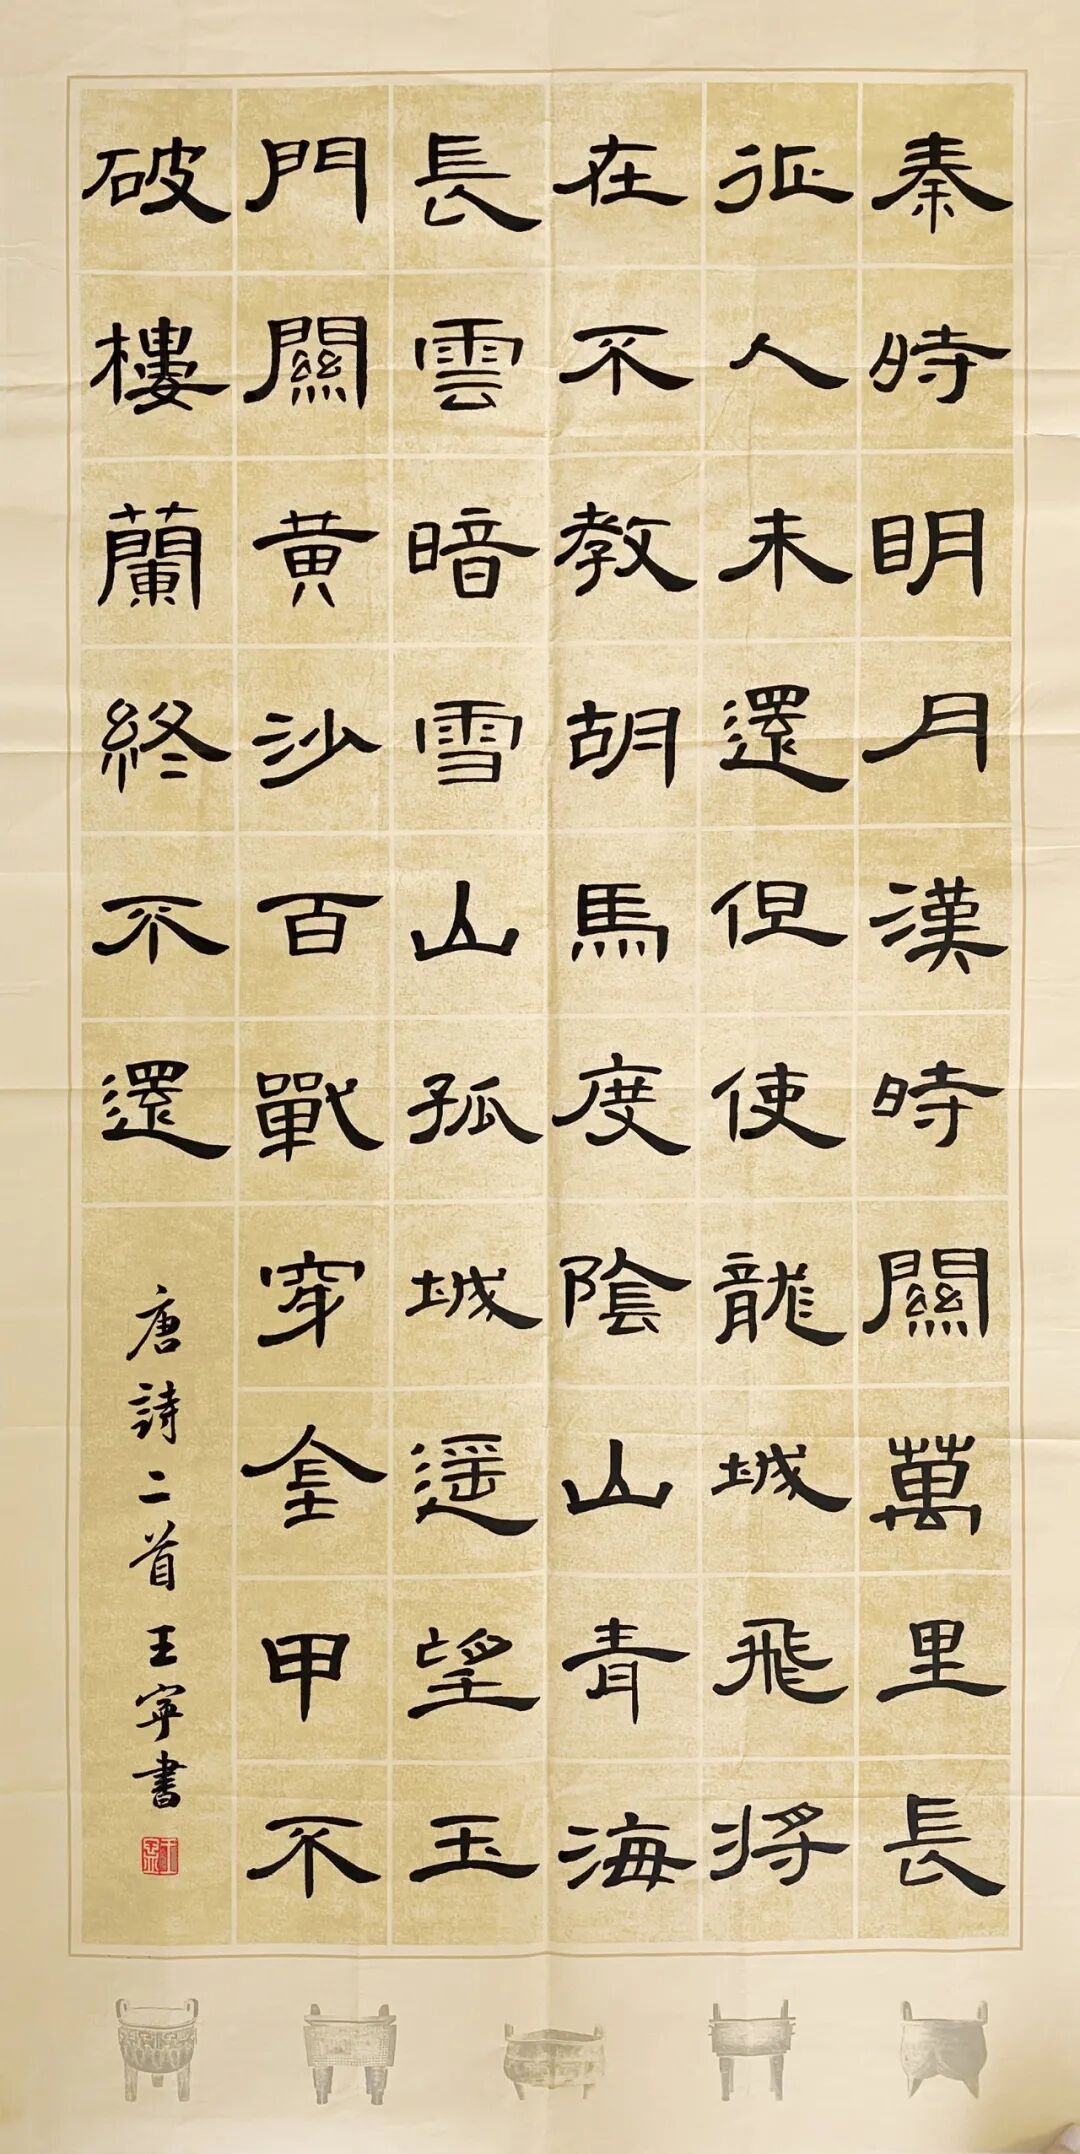 秦時明月漢時關萬里長
征人未還但使龍城飛將
在不教胡馬度陰山青海
長雲暗雪山孤城遥望玉
門關黄沙百戰穿金甲不
破樓蘭終不還
唐詩二首王寧書